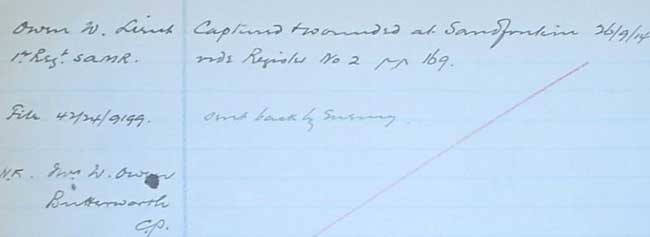 Owen W. Lieut Captured & wounded at Sandfontein 26/9/14
1st Regt SAMR. vide Register No 2 pp 169.
File 42/24/9199. Sent back by Enemy.
N.K. Mrs W. Owen
Butterworth
C.P.